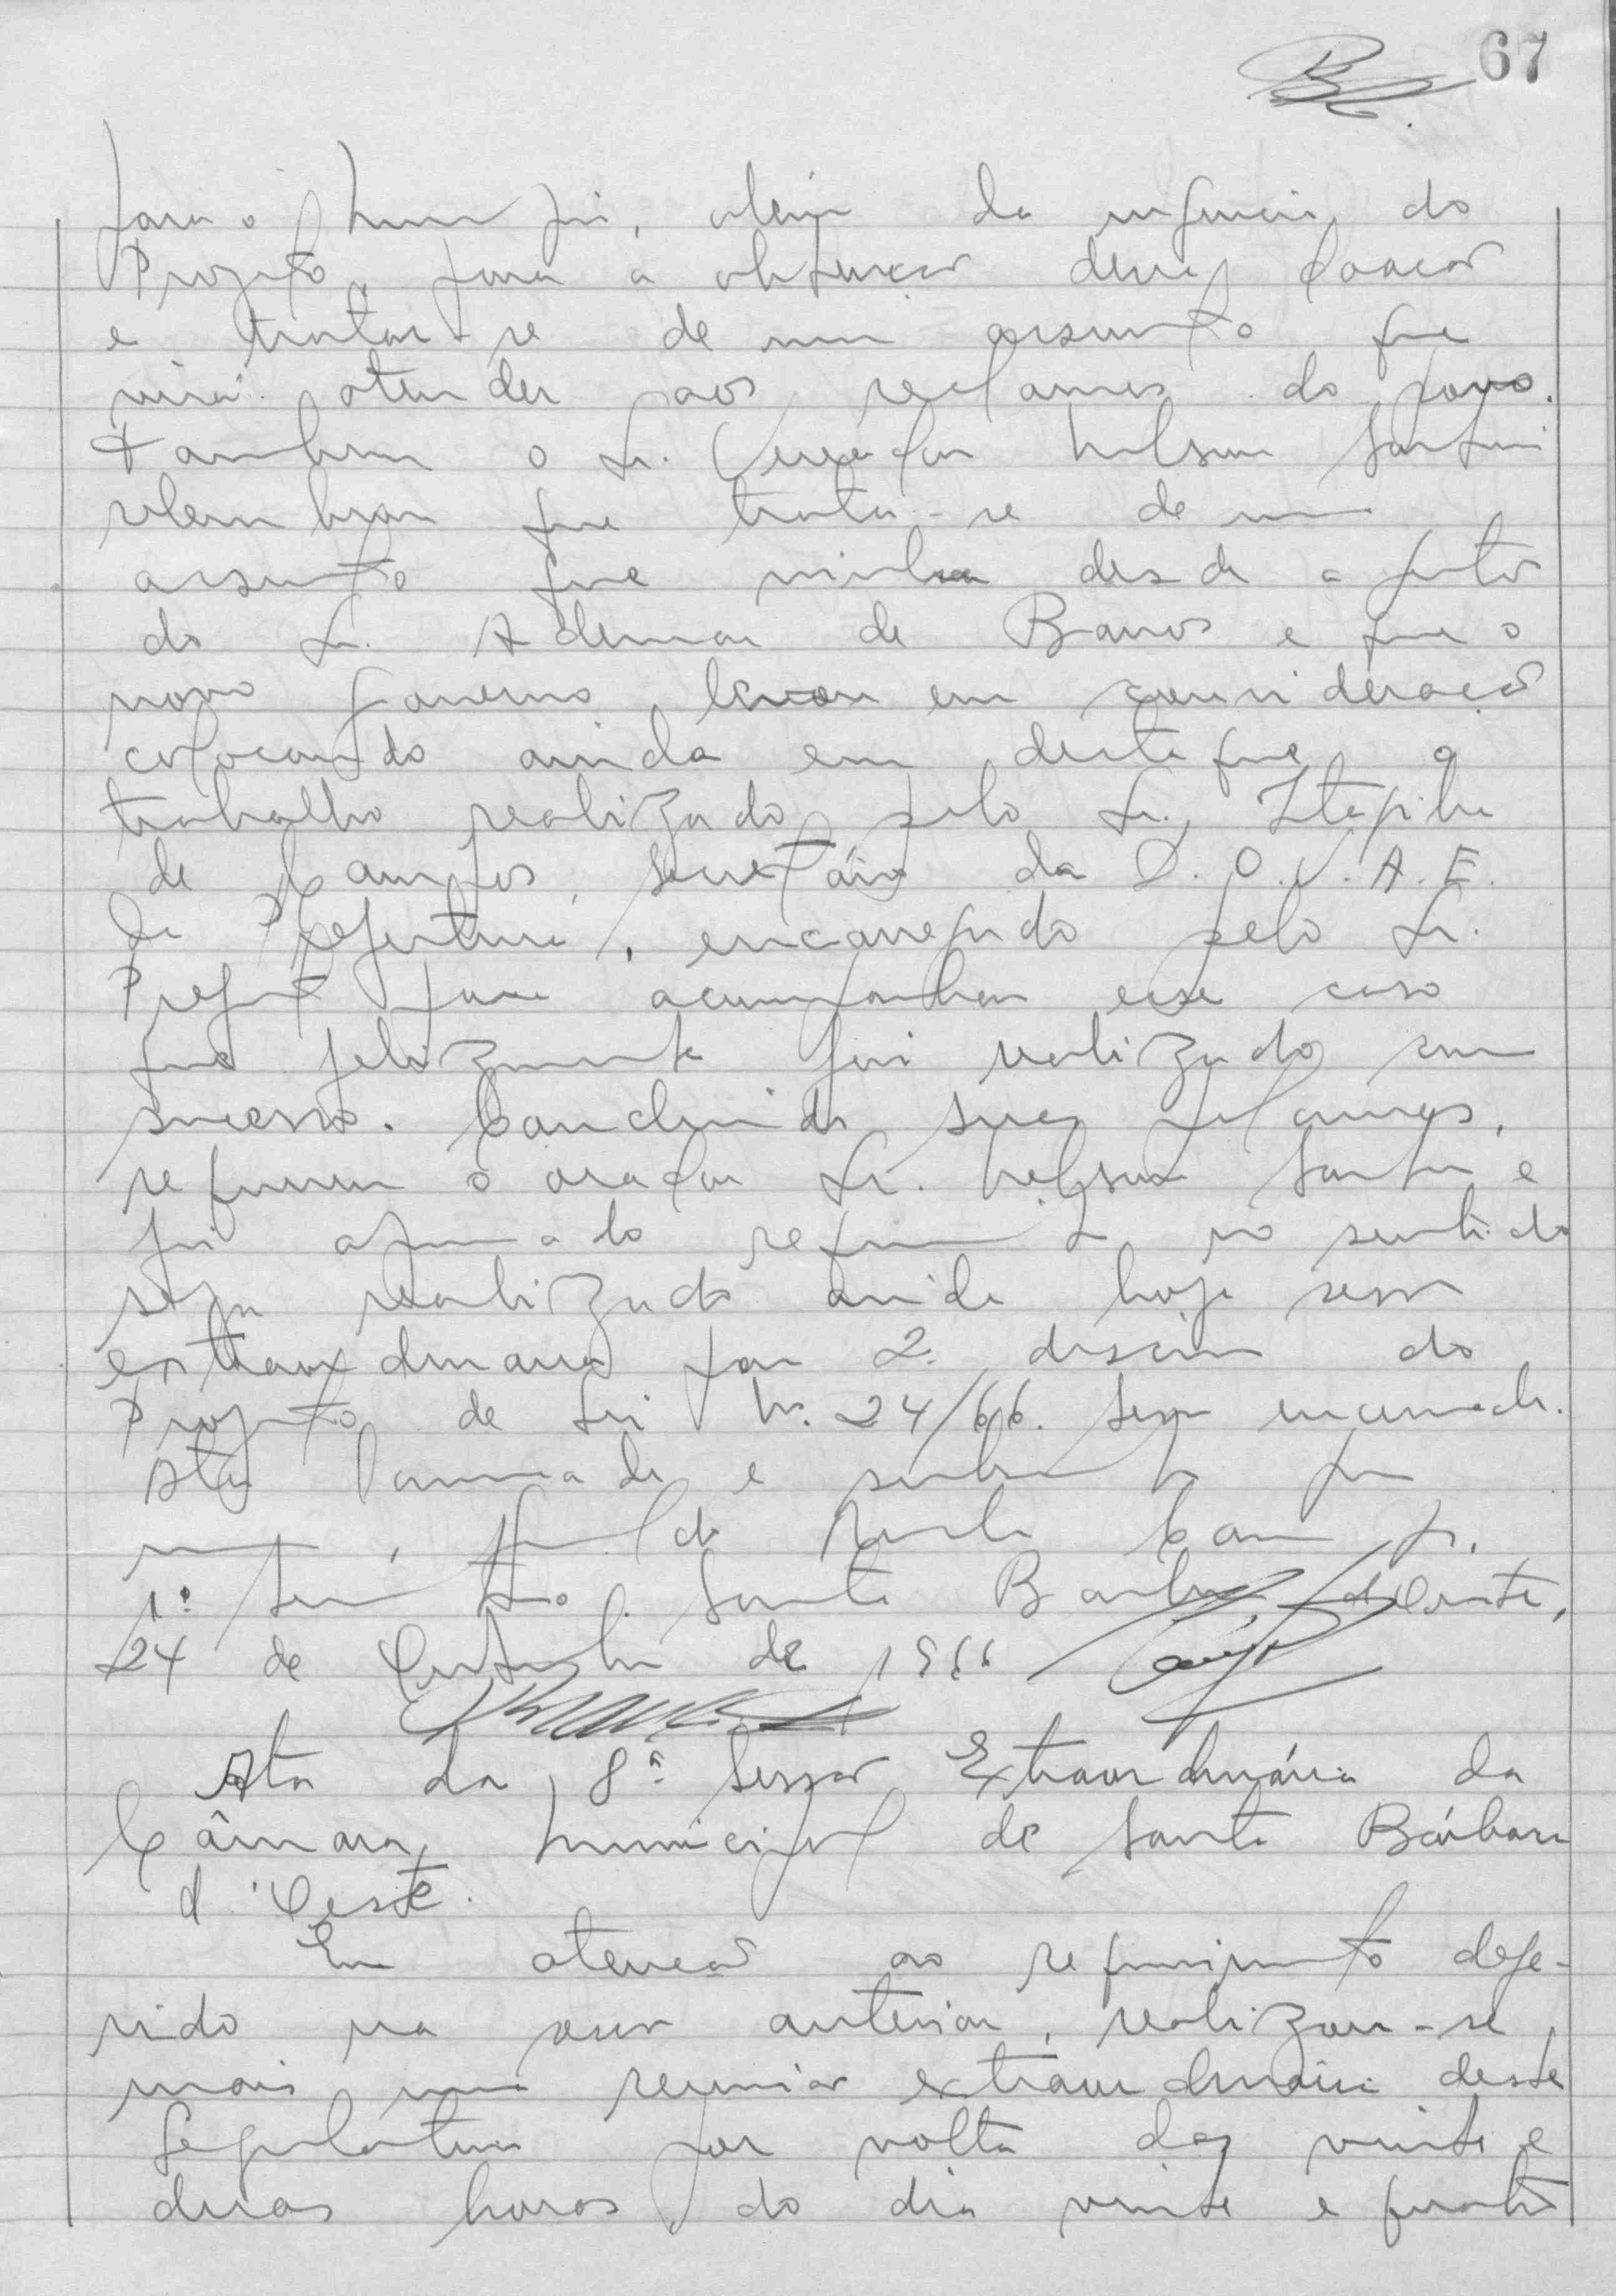 67
para o Município, além da urgência do
Projeto, para a obtenção dessa doação
e tratar-se de um assunto que
virá atender aos reclamos do povo.
Tambem o Sr. Vereador Nelson
relembrou que trata-se de um
assunto que vinha desde a gestão
do Sr. Ademar de Barros e que o
novo governo levou em consideração
colocando ainda em destaque o
trabalho realizado pelo Sr.
de Campos, Secretário da D. O. S. A. E.
da Prefeitura, encarregado pelo Sr.
Prefeito para acompanhar esse caso
que felizmente foi realizado com
sucesso. Concluindo suas palavras,
requereu o orador Sr. Nelson e
foi aprovado requerimento no sentido
seja realizado ainda hoje sessão
extraordinaria para 2a. discussão do
Projeto de Lei Nr. 24/66. Sessão encerrada.
Ata lavrada e subscrita por
mim, Campos,
1º Secretário. Santa Barbara d'Oeste,
24 de Outubro de 1966
Ata da 8ª Sessão Extraordinária da
Câmara Municipal de Santa Bárbara
d'Oeste.
Em atenção ao requerimento defe-
rido na sessão anterior, realizou-se
mais uma reunião extraordinária desta
Legislatura por volta das vinte e
duas horas do dia vinte e quatro